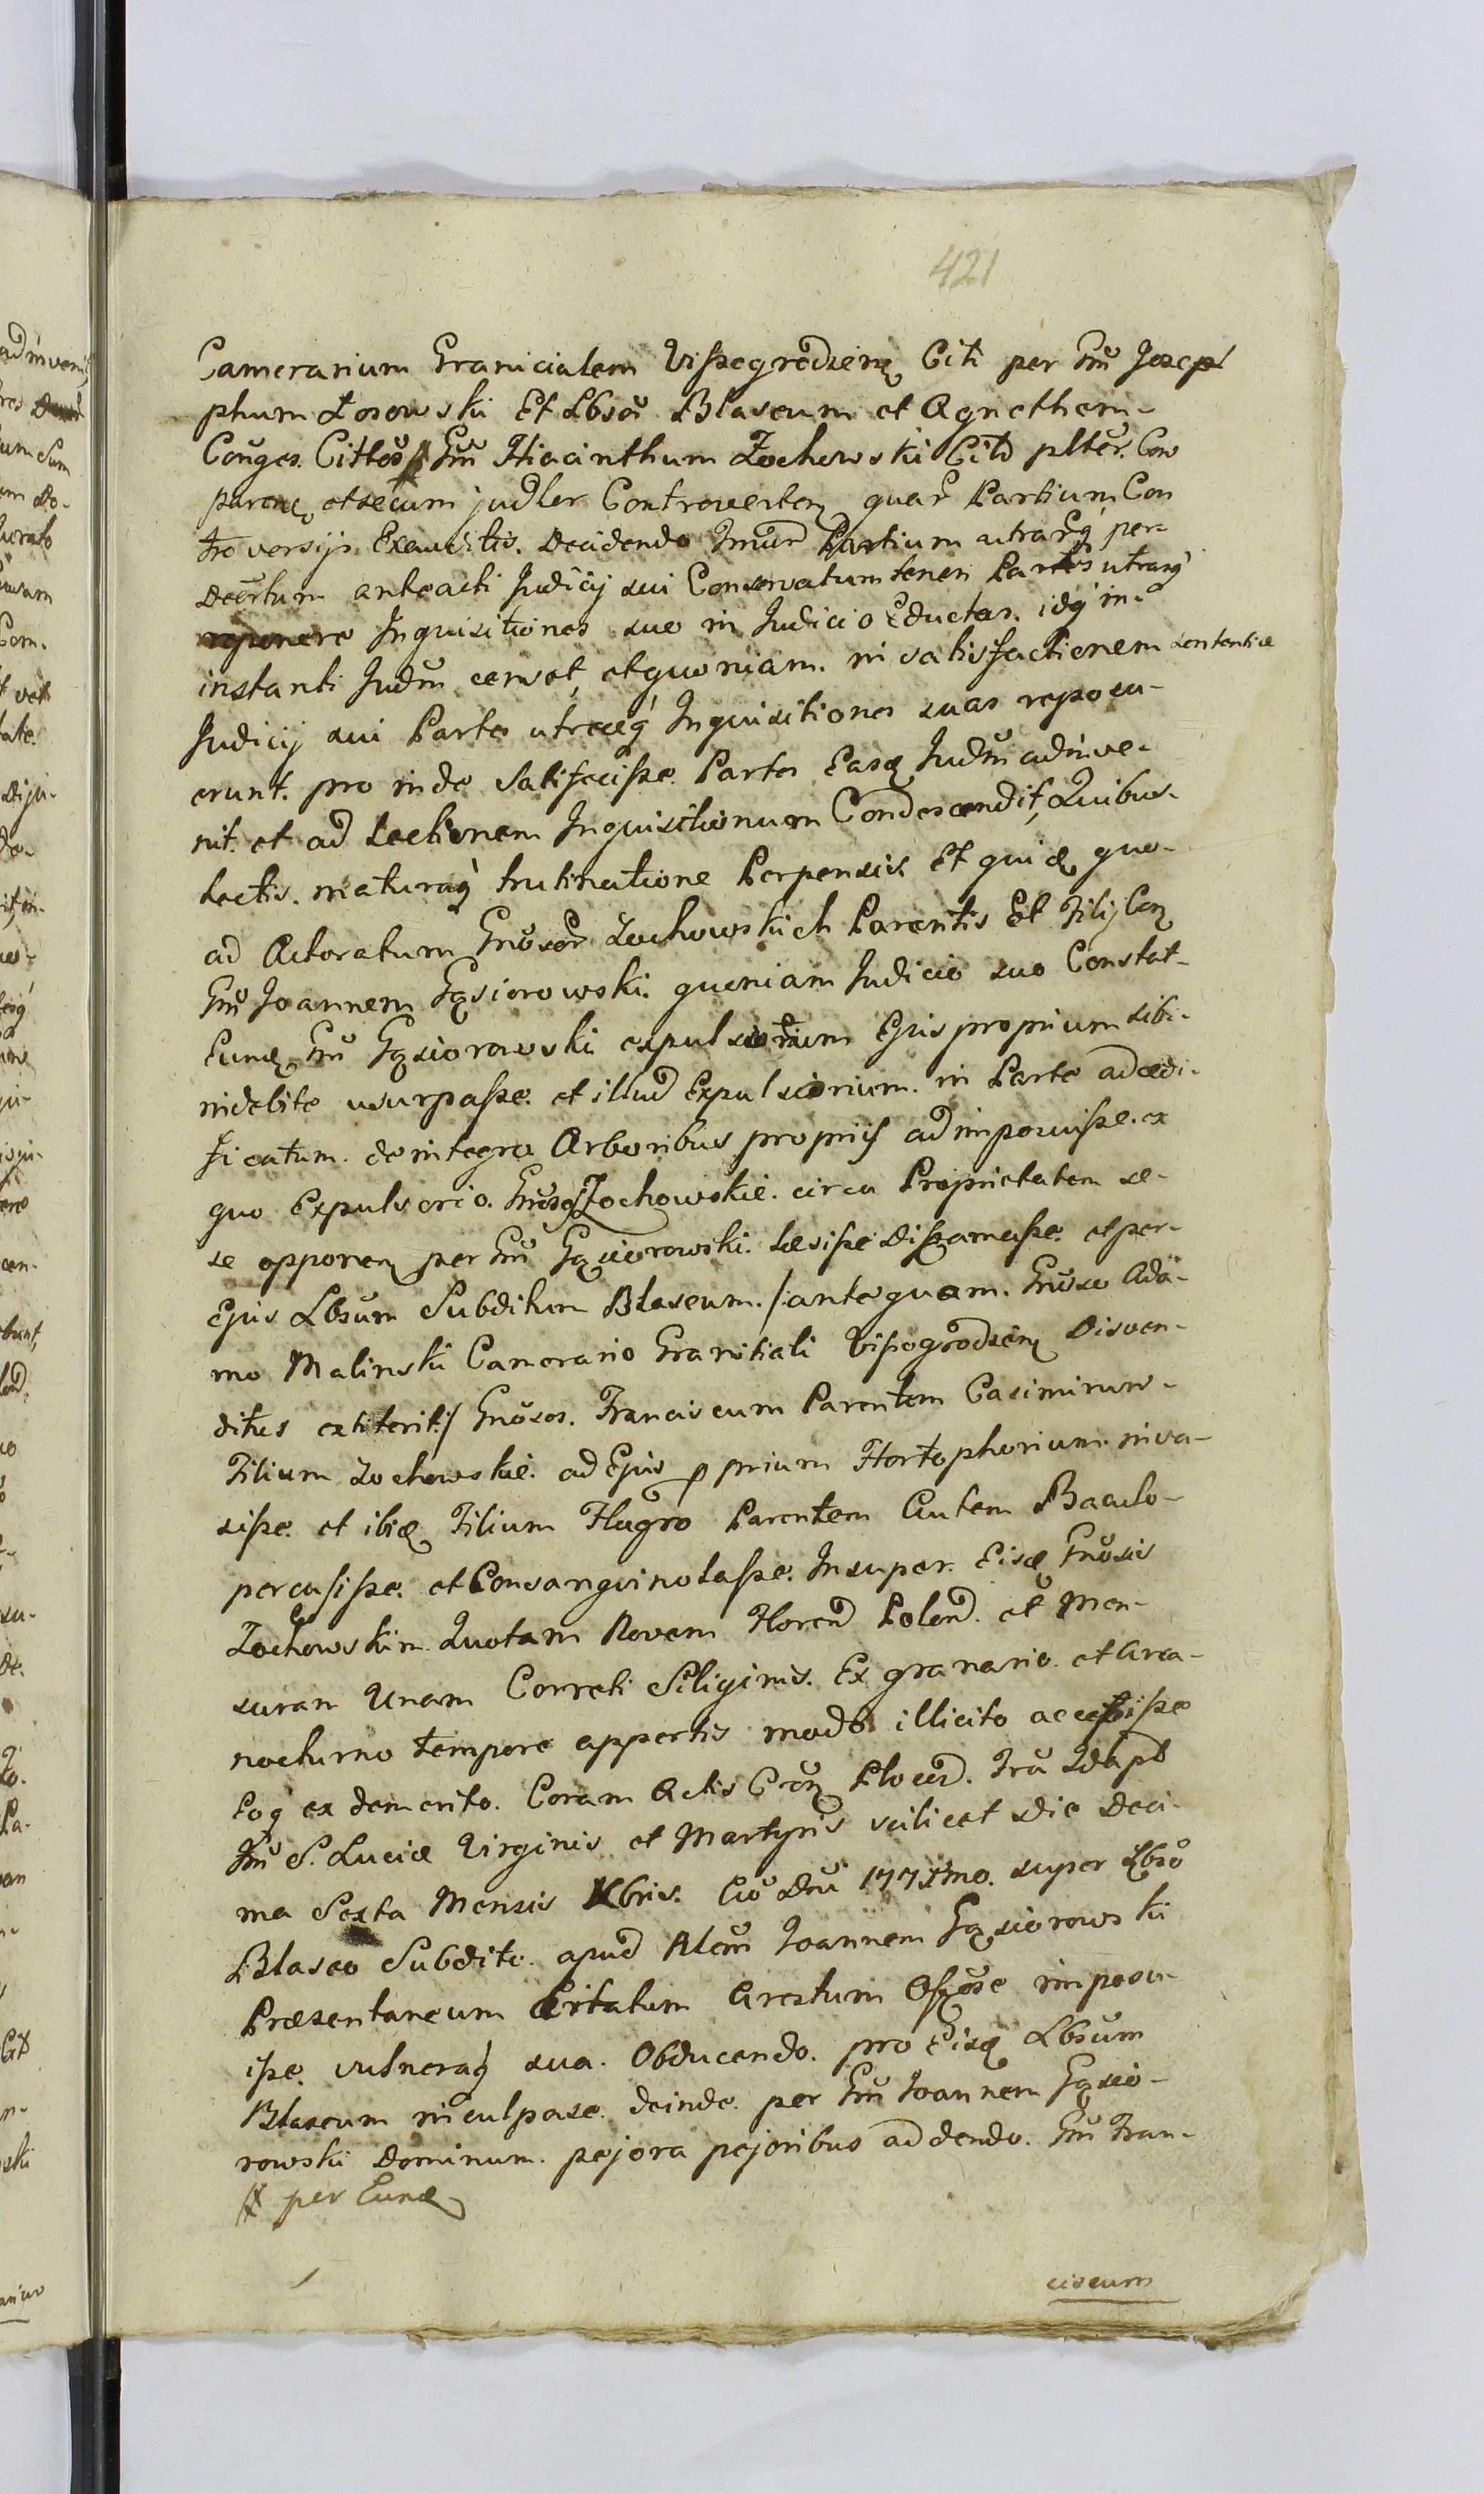 421
Camerarium Granicialem Vissegrodzens Citi per Gnu Josep
phum Łosowski Et Lbsos Blaseum et Agnethem-
Conges. Cittos # Gnu Hiacinthum Żochowski Citt plter. Com
parens et secum judler Controvertens quar Partium Con
troversijs Exauditis. Decidendo Partium utrarq per
Decrtum anteacti Judicij sui Conservatum teneri Partes utrasq
reponere Inquisitiones suo in Judicio Eductas. idq in-
instanti Judm censet, et quoniam. in satisfactionem sententiæ
Judicij sui Partes utræq Inquisitiones suas reposu-
erunt. pro inde Satisfecisse. Partes Easd Judm adinve-
nit. et ad Lectionem Inquisitionum Condescendit, Quibus-
Lectis. maturaq trutinatione Perpensis Et quid quo-
ad Actoratum Gnosor Żochowskich Parentis Et Filij Con
Gnu Joannem Gąsiorowski. quoniam Judicio suo Constat-
Eund Gnu Gąsiorowski expulsorium Ejus proprium sibi-
indebite usurpasse. et illud Expulsorium. in Parte adædi-
ficatum. de integro Arboribus proprijs adimpovisse. ex
quo Expulsorio. Gnosos Żochowskie. circa Proprietatem se-
se opponen per Gnu Gąsiorowski. Læsisse Diffamasse. et per-
Ejus Lbsum Subditum Blaseum. /: antequam. Gnoso Ada-
mo Malinski Camerario Granitiali Vissogrodzens Disven-
ditus extiterit :/ Gnosos. Franciscum Parentem Casimirum-
Filium Żochowskie. ad Ejus p prium Hortophorium inva-
sisse. et ibid Filium Flagro Parentem Autem Baculo-
percussisse. et Consanguinolasse. Insuper. Eisd Gnosis
Żochowskim. Quotam Novem Floren Polon. et Men-
suram Unam Correti Siliginis. Ex granario. et Area-
nocturno tempore appertis modo illicito accepisse
Eoq ex demerito. Coram Actis Plocen.
S. Luciæ Virginis et Martyris scilicet Die Deci-
ma Sexta Mensis Xbris. Ao Dni super Lbso
Blaseo Subdito. apud Joannem Gąsiorowski
Præsentaneum Citatum Arestum Offose imposu-
isse. vulneraq sua. Obducendo. pro Eisd Lbsum
Blaseum inculpasse. deinde. per Gnu Joannem Gąsio-
rowski Dominum. pejora pejoribus addendo. Gnu Fran-
# per Eund
ciscum